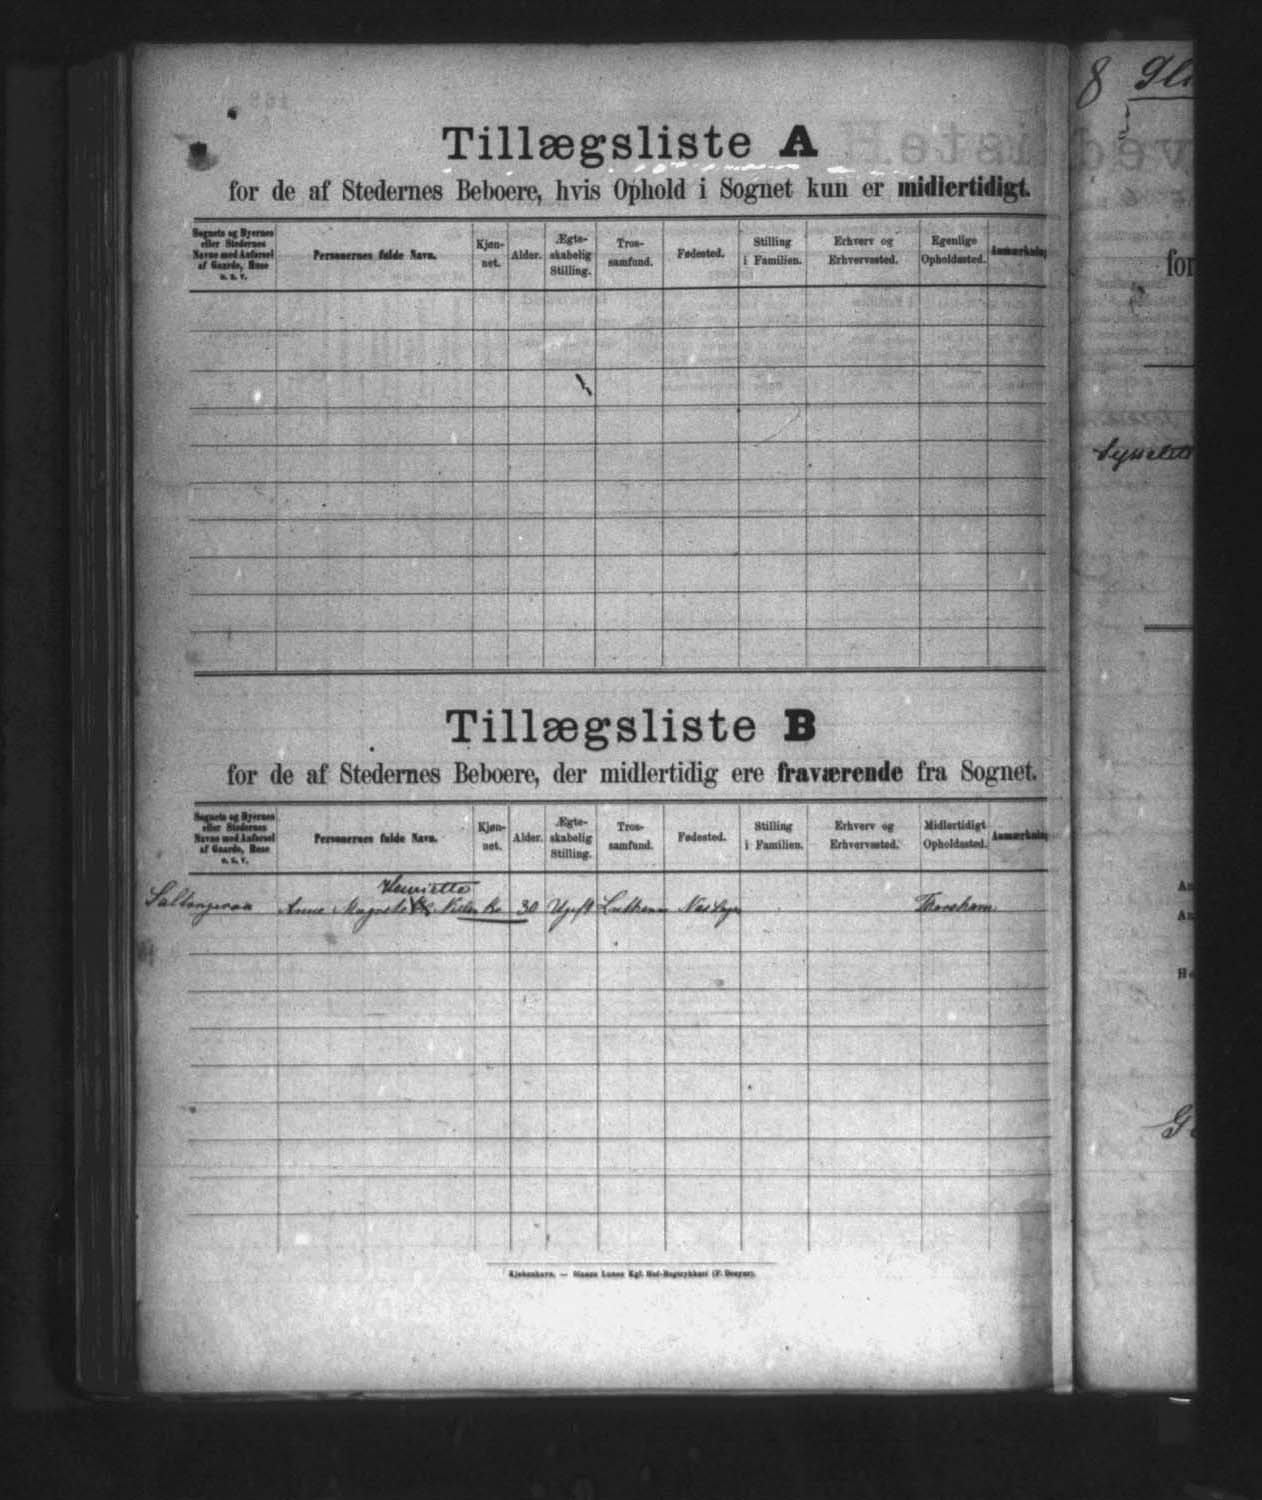 Tillægsliste A
for de af Stedernes Beboere, hvis Ophold i Sognet kun er midlertidigt.
Sognets og Byernes eller Stedernes Navne med Anførsel af Gaarde, Huse o. s. v.
Personernes fulde Navn.
Kjøn-net.
Alder.
Ægte-skabelig Stilling.
Tros-samfund.
Fødested.
Stilling i Familien.
Erhverv og Erhvervssted.
Egenlige Opholdssted.
Anmærkning
Tillægsliste B
for de af Stedernes Beboere, der midlertidig ere fraværende fra Sognet.
Sognets og Byernes eller Stedernes Navne med Anførsel af Gaarde, Huse o. s. v.
Personernes fulde Navn.
Kjøn-net.
Alder.
Ægte-skabelig Stilling.
Tros-samfund.
Fødested.
Stilling i Familien.
Erhverv og Erhvervssted.
Midlertidigt Opholdssted.
Anmærkning
Henriette
Saltangeraa Anne 30 Ugift Thorshavn
8
for